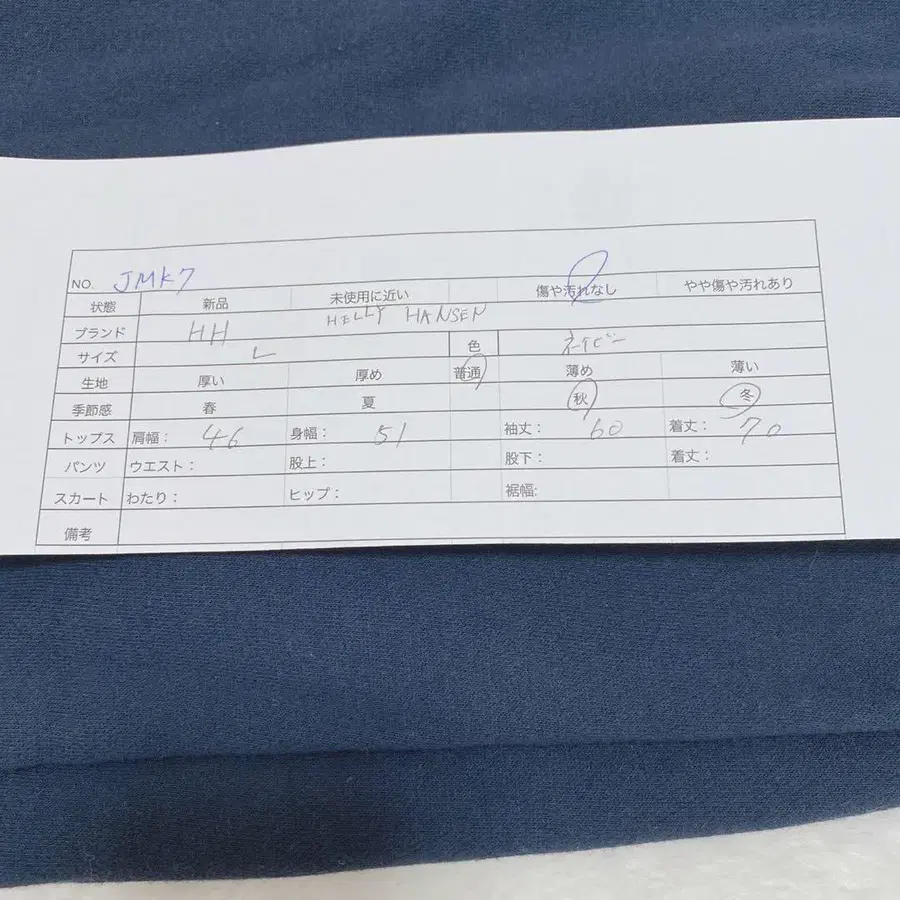 NO. JMK7
状態 新品 未使用に近い 傷や汚れなし やや傷や汚れあり
ブランド HH HELLY HANSEN
サイズ L 色 ネイビー
生地 厚い 厚め 普通 薄め 薄い
季節感 春 夏 秋 冬
トップス 肩幅: 46 身幅: 51 袖丈: 60 着丈: 70
パンツ ウエスト: 股上: 股下: 着丈:
スカート わたり: ヒップ: 裾幅:
備考